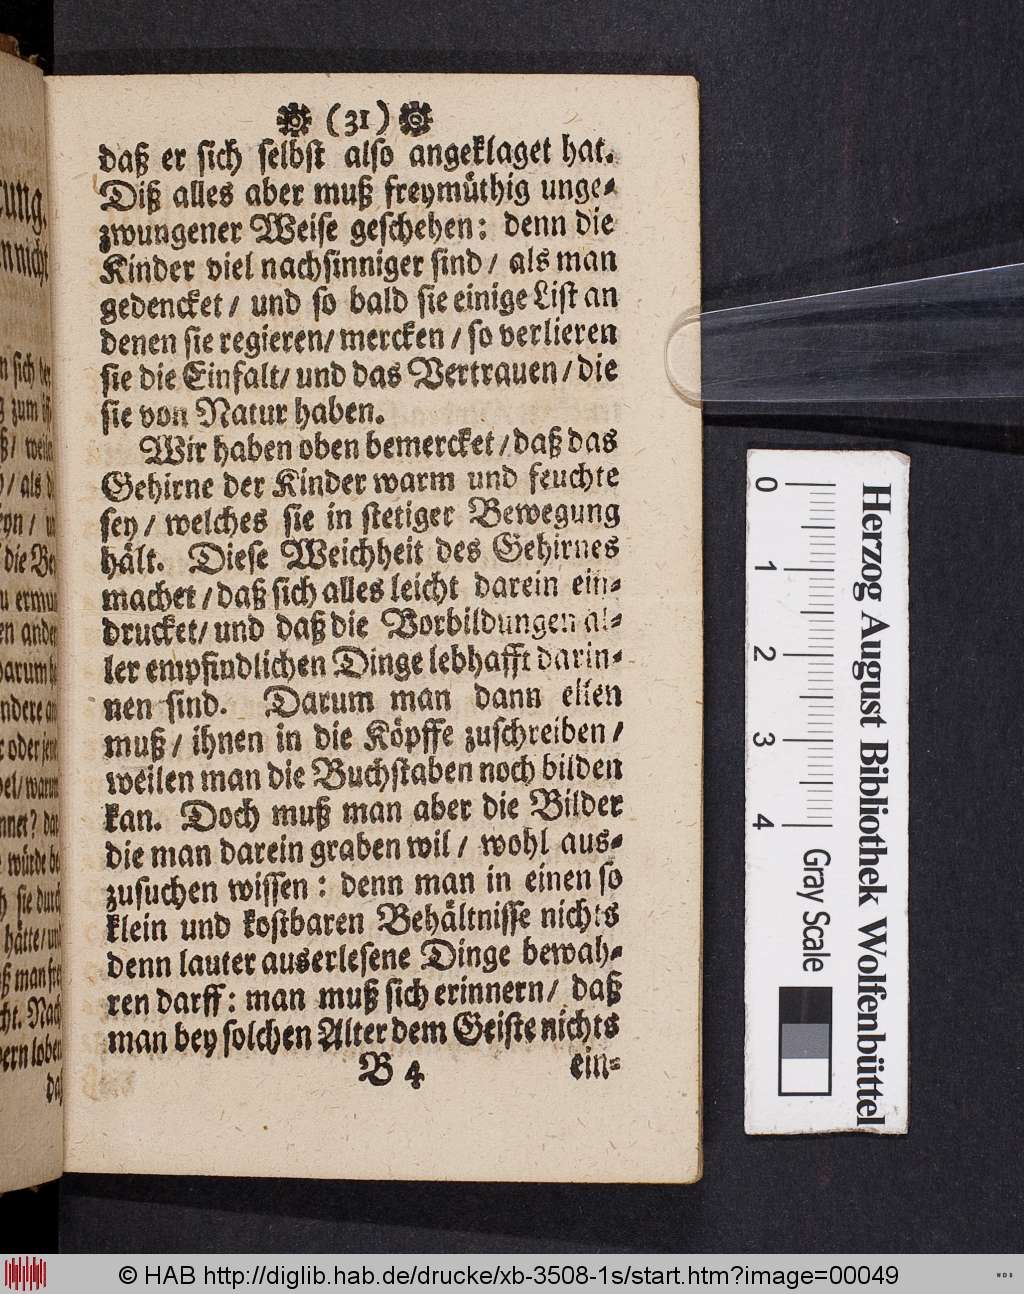 (31)
daß er sich selbst also angeklaget hat.
Diß alles aber muß freymüthig unge-
zwungener Weise geschehen: denn die
Kinder viel nachsinniger sind / als man
gedencket / und so bald sie einige List an
denen sie regieren/ mercken / so verlieren
sie die Einfalt/ und das Vertrauen / die
sie von Natur haben.
Wir haben oben bemercket / daß das
Gehirne der Kinder warm und feuchte
sey / welches sie in stetiger Bewegung
hält. Diese Weichheit des Gehirnes
machet / daß sich alles leicht darein ein-
drucket/ und daß die Vorbildungen al-
ler empfindlichen Dinge lebhafft darin-
nen sind. Darum man dann eilen
muß / ihnen in die Köpffe zuschreiben /
weilen man die Buchstaben noch bilden
kan. Doch muß man aber die Bilder
die man darein graben wil / wohl aus-
zusuchen wissen: denn man in einen so
klein und kostbaren Behältnisse nichts
denn lauter auserlesene Dinge bewah-
ren darff: man muß sich erinnern/ daß
man bey solchen Alter dem Geiste nichts
B 4 ein-
cung.
nicht
n sich der
zum
ß / weilen
/ als
die Be
ermun
en ander
darum
ndere an
oder jene
bel/ warum
nnet? daß
würde be
sie durch
hätte / und
ß man frey
cht. Nach
bern loben
daß
0 1 2 3 4
Gray Scale
Herzog August Bibliothek Wolfenbüttel
© HAB http://diglib.hab.de/drucke/xb-3508-1s/start.htm?image=00049
WDB